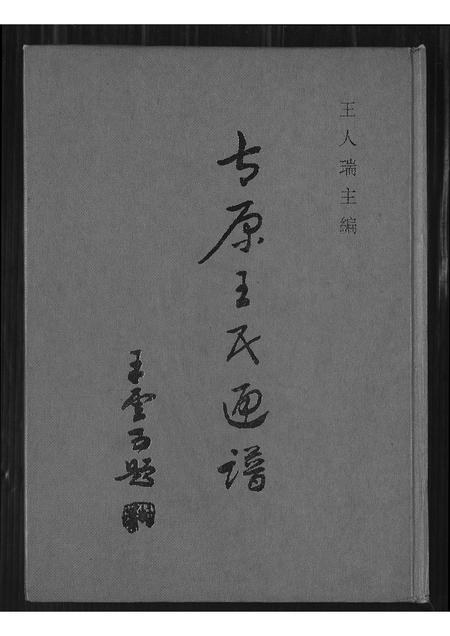 王人瑞主編
太原王氏通譜
王雲五題